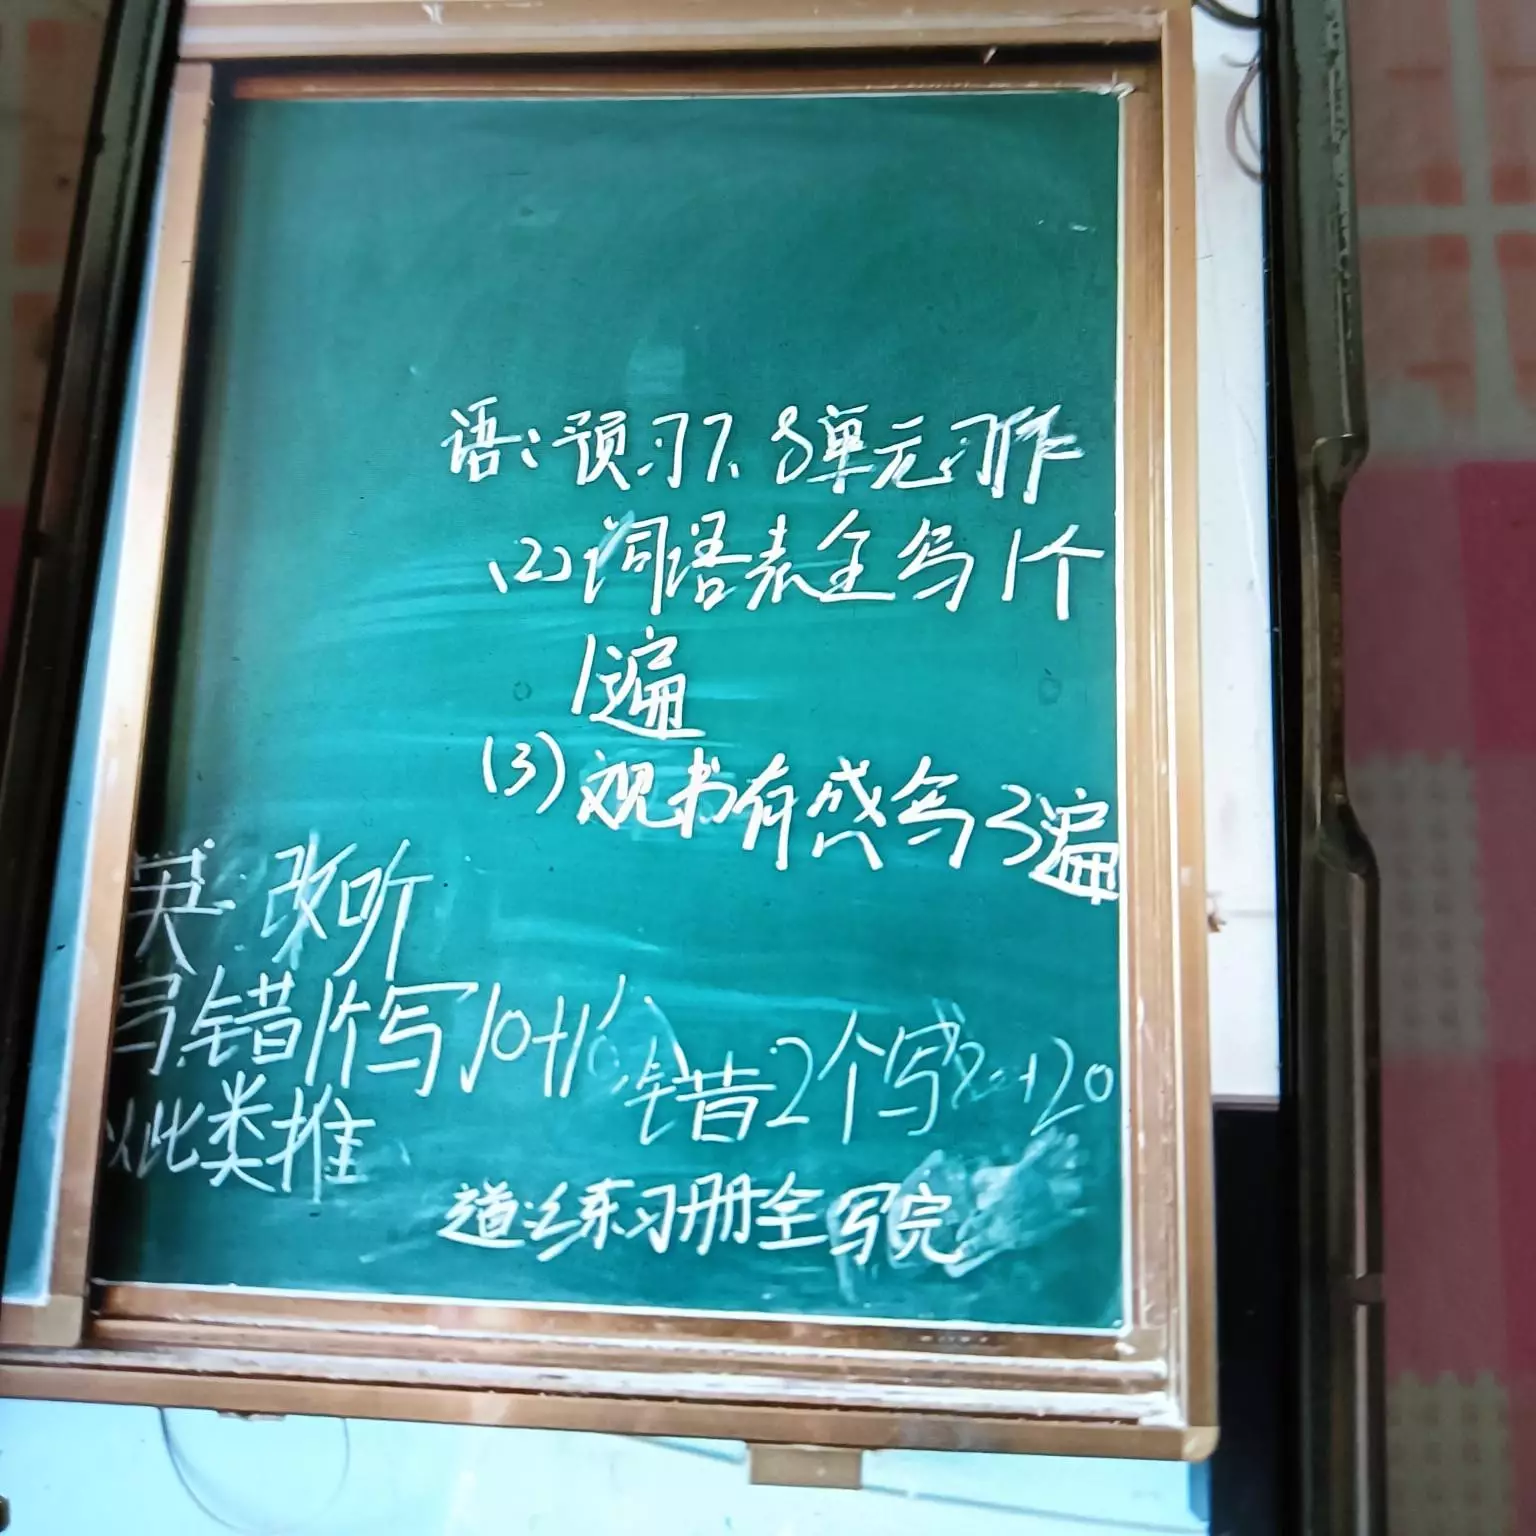 语:预习7、8单元习作
(2)词语表全写1个
1遍
(3)观书有感写3遍
英:改听
写,错1个写10+10,错2个写20+20
以此类推
道:练习册全写完